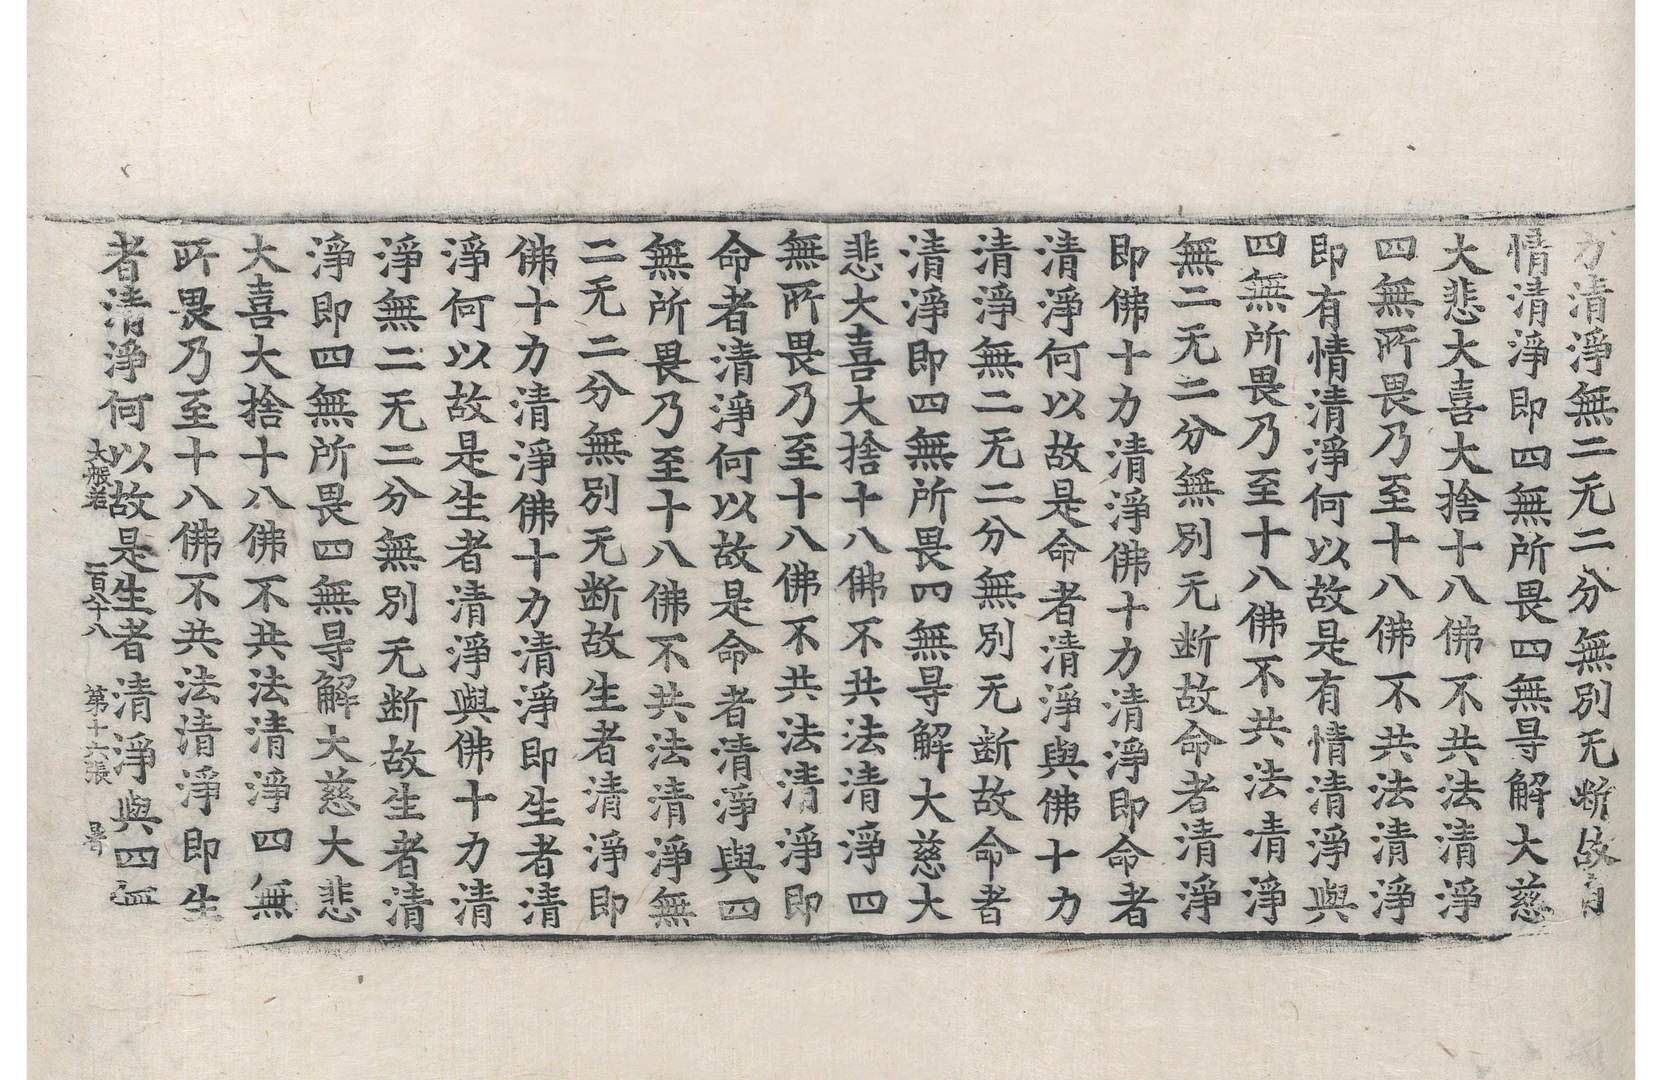 力清淨無二无二分無別无断故有
情清淨即四無所畏四無导解大慈
大悲大喜大捨十八佛不共法清淨
四無所畏乃至十八佛不共法清淨
即有情清淨何以故是有情清淨與
四無所畏乃至十八佛不共法清淨
無二无二分無別无断故命者清淨
即佛十力清淨佛十力清淨即命者
清淨何以故是命者清淨與佛十力
清淨無二无二分無別无断故命者
清淨即四無所畏四無导解大慈大
悲大喜大捨十八佛不共法清淨四
無所畏乃至十八佛不共法清淨即
命者清淨何以故是命者清淨與四
無所畏乃至十八佛不共法清淨無
二无二分無別无断故生者清淨即
佛十力清淨佛十力清淨即生者清
淨何以故是生者清淨與佛十力清
淨無二无二分無別无断故生者清
淨即四無所畏四無导解大慈大悲
大喜大捨十八佛不共法清淨四無
所畏乃至十八佛不共法清淨即生
者清淨何以故是生者清淨與四無
大般若 一百八十八 第十六張